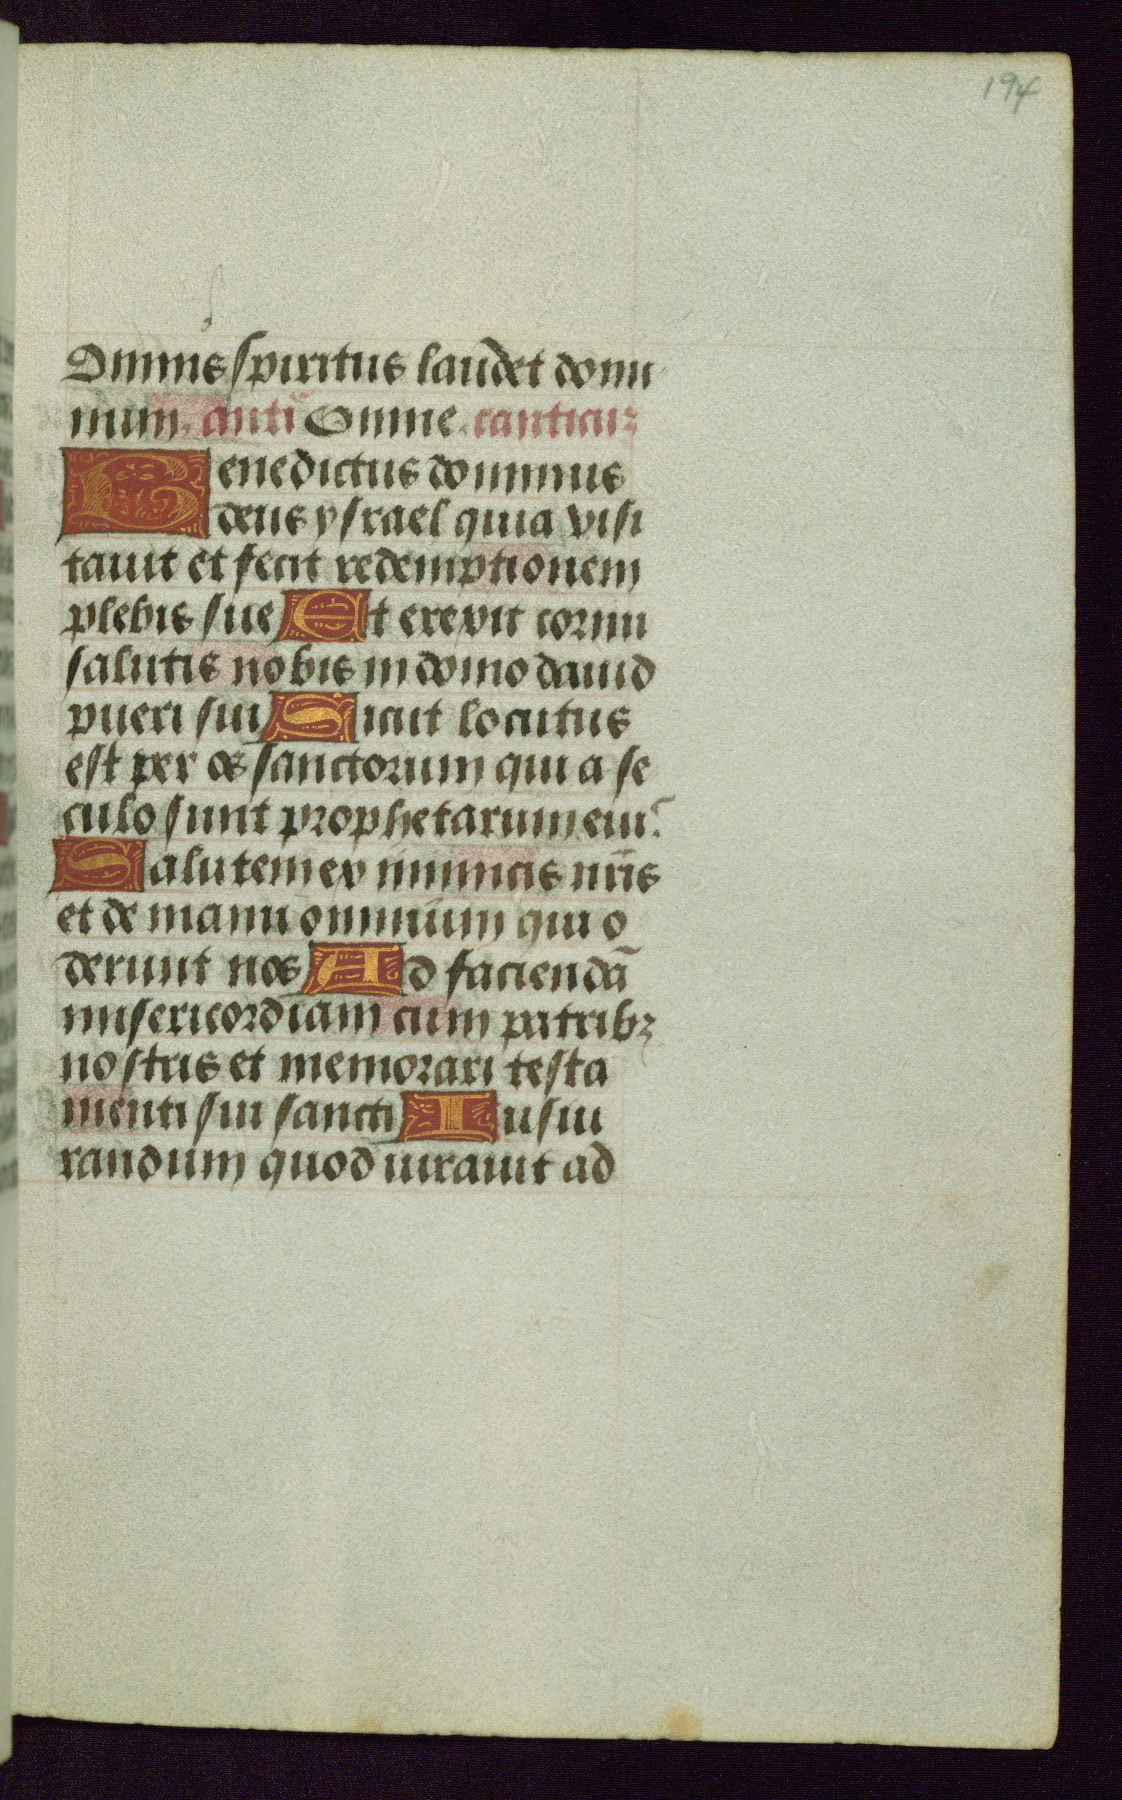 194
Omnis spiritus laudet domi
num. anti Omne. canticu
Benedictus dominus
deus ysrael quia visi
tauit et fecit redemptionem
plebis sue Et erexit cornu
salutis nobis in domo dauid
pueri sui Sicut locutus
est per os sanctorum qui a se
culo sunt prophetarum eiu᾿
Salutem ex inimicis nr̄is
et de manu omnium qui o
derunt nos Ad faciendā
misericordiam cum patribꝫ
nostris et memorari testa
menti sui sancti Iusiu
randum quod iurauit ad